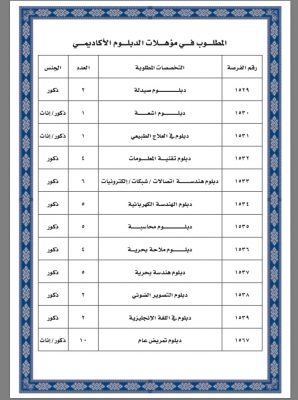 المطلوب في مؤهلات الدبلوم الأكاديمي
رقم الفرصة التخصصات المطلوبة العدد الجنس
١٥٢٩ دبلوم صيدلة ٢ ذكور
١٥٣٠ دبلوم اشعة ١ ذكور/إناث
١٥٣١ دبلوم في العلاج الطبيعي ١ ذكور/إناث
١٥٣٢ دبلوم تقنية المعلومات ٤ ذكور
١٥٣٣ دبلوم هندسة اتصالات / شبكات / إلكترونيات ٦ ذكور
١٥٣٤ دبلوم الهندسة الكهربائية ٥ ذكور
١٥٣٥ دبلوم محاسبة ٥ ذكور
١٥٣٦ دبلوم ملاحة بحرية ٤ ذكور
١٥٣٧ دبلوم هندسة بحرية ٥ ذكور
١٥٣٨ دبلوم التصوير الضوئي ٢ ذكور
١٥٣٩ دبلوم في اللغة الإنجليزية ٢ ذكور
١٥٦٧ دبلوم تمريض عام ١٠ ذكور/إناث